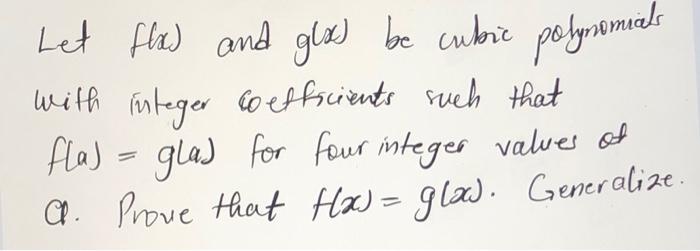 Let f(x) and g(x) be cubic polynomials
with integer coefficients such that
f(a) = g(a) for four integer values of
a. Prove that f(x) = g(x). Generalize.